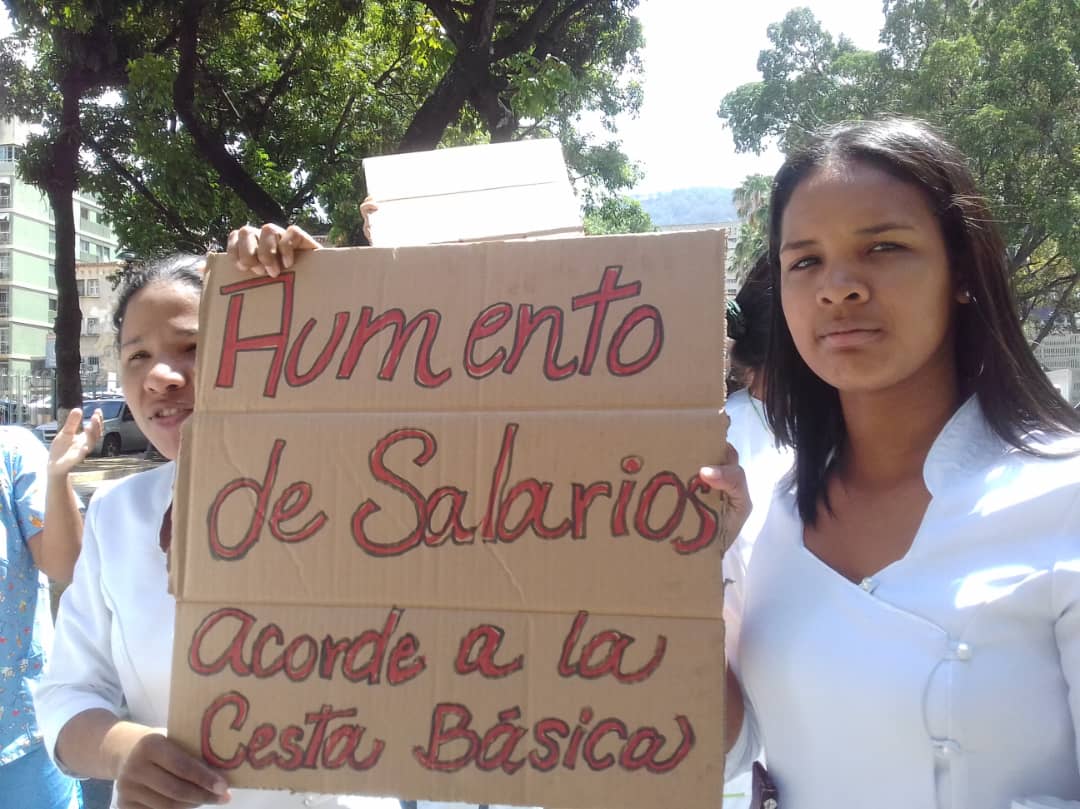 Aumento
de Salarios
acorde a la
Cesta Básica